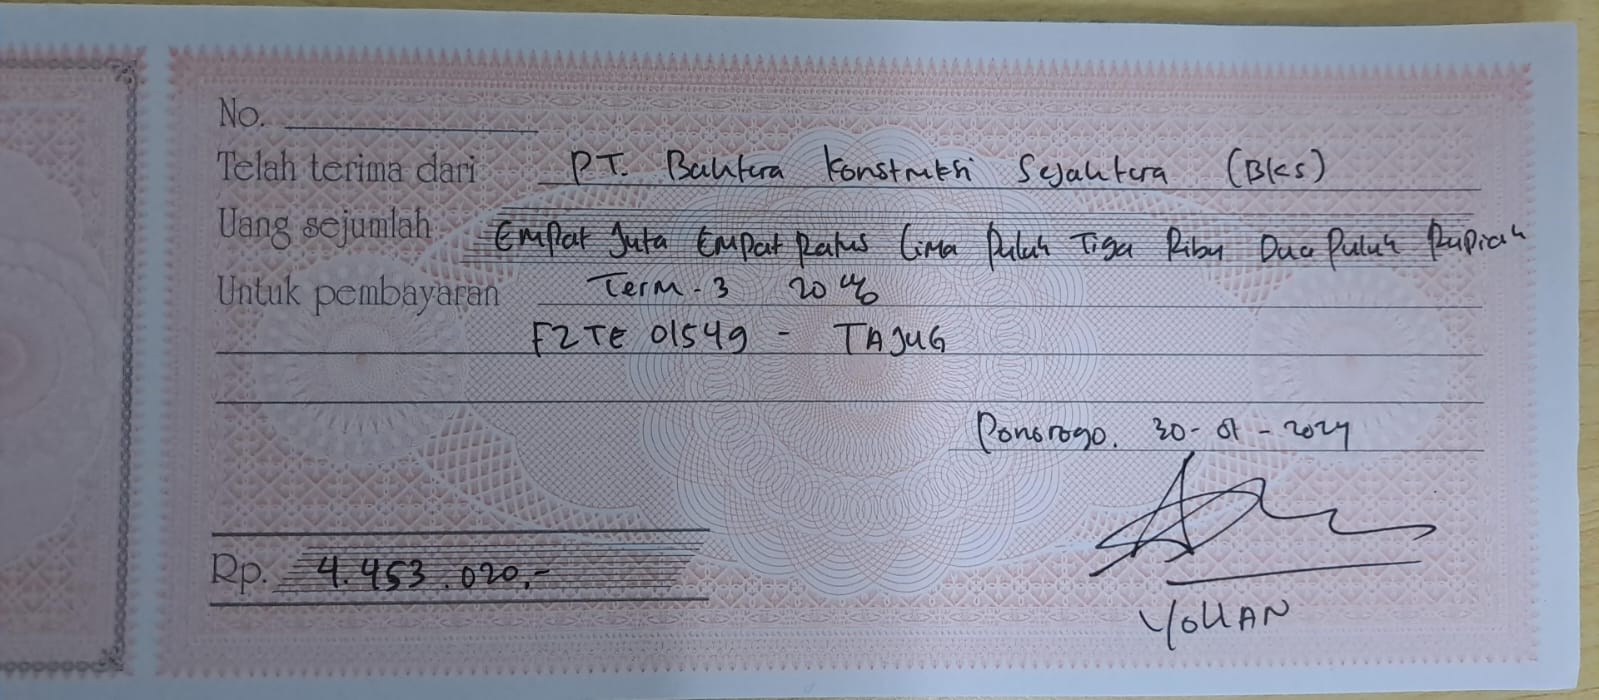 No.
Telah terima dari PT. Bahtera Konstruksi Sejahtera (BKS)
Uang sejumlah Empat Juta Empat Ratus Lima Puluh Tiga Ribu Dua Puluh Rupiah
Untuk pembayaran Term - 3 20%
F2TE 01549 - TAJUG
Ponorogo. 30 - 01 - 2024
Rp. 4.453.020,-
YOHAN